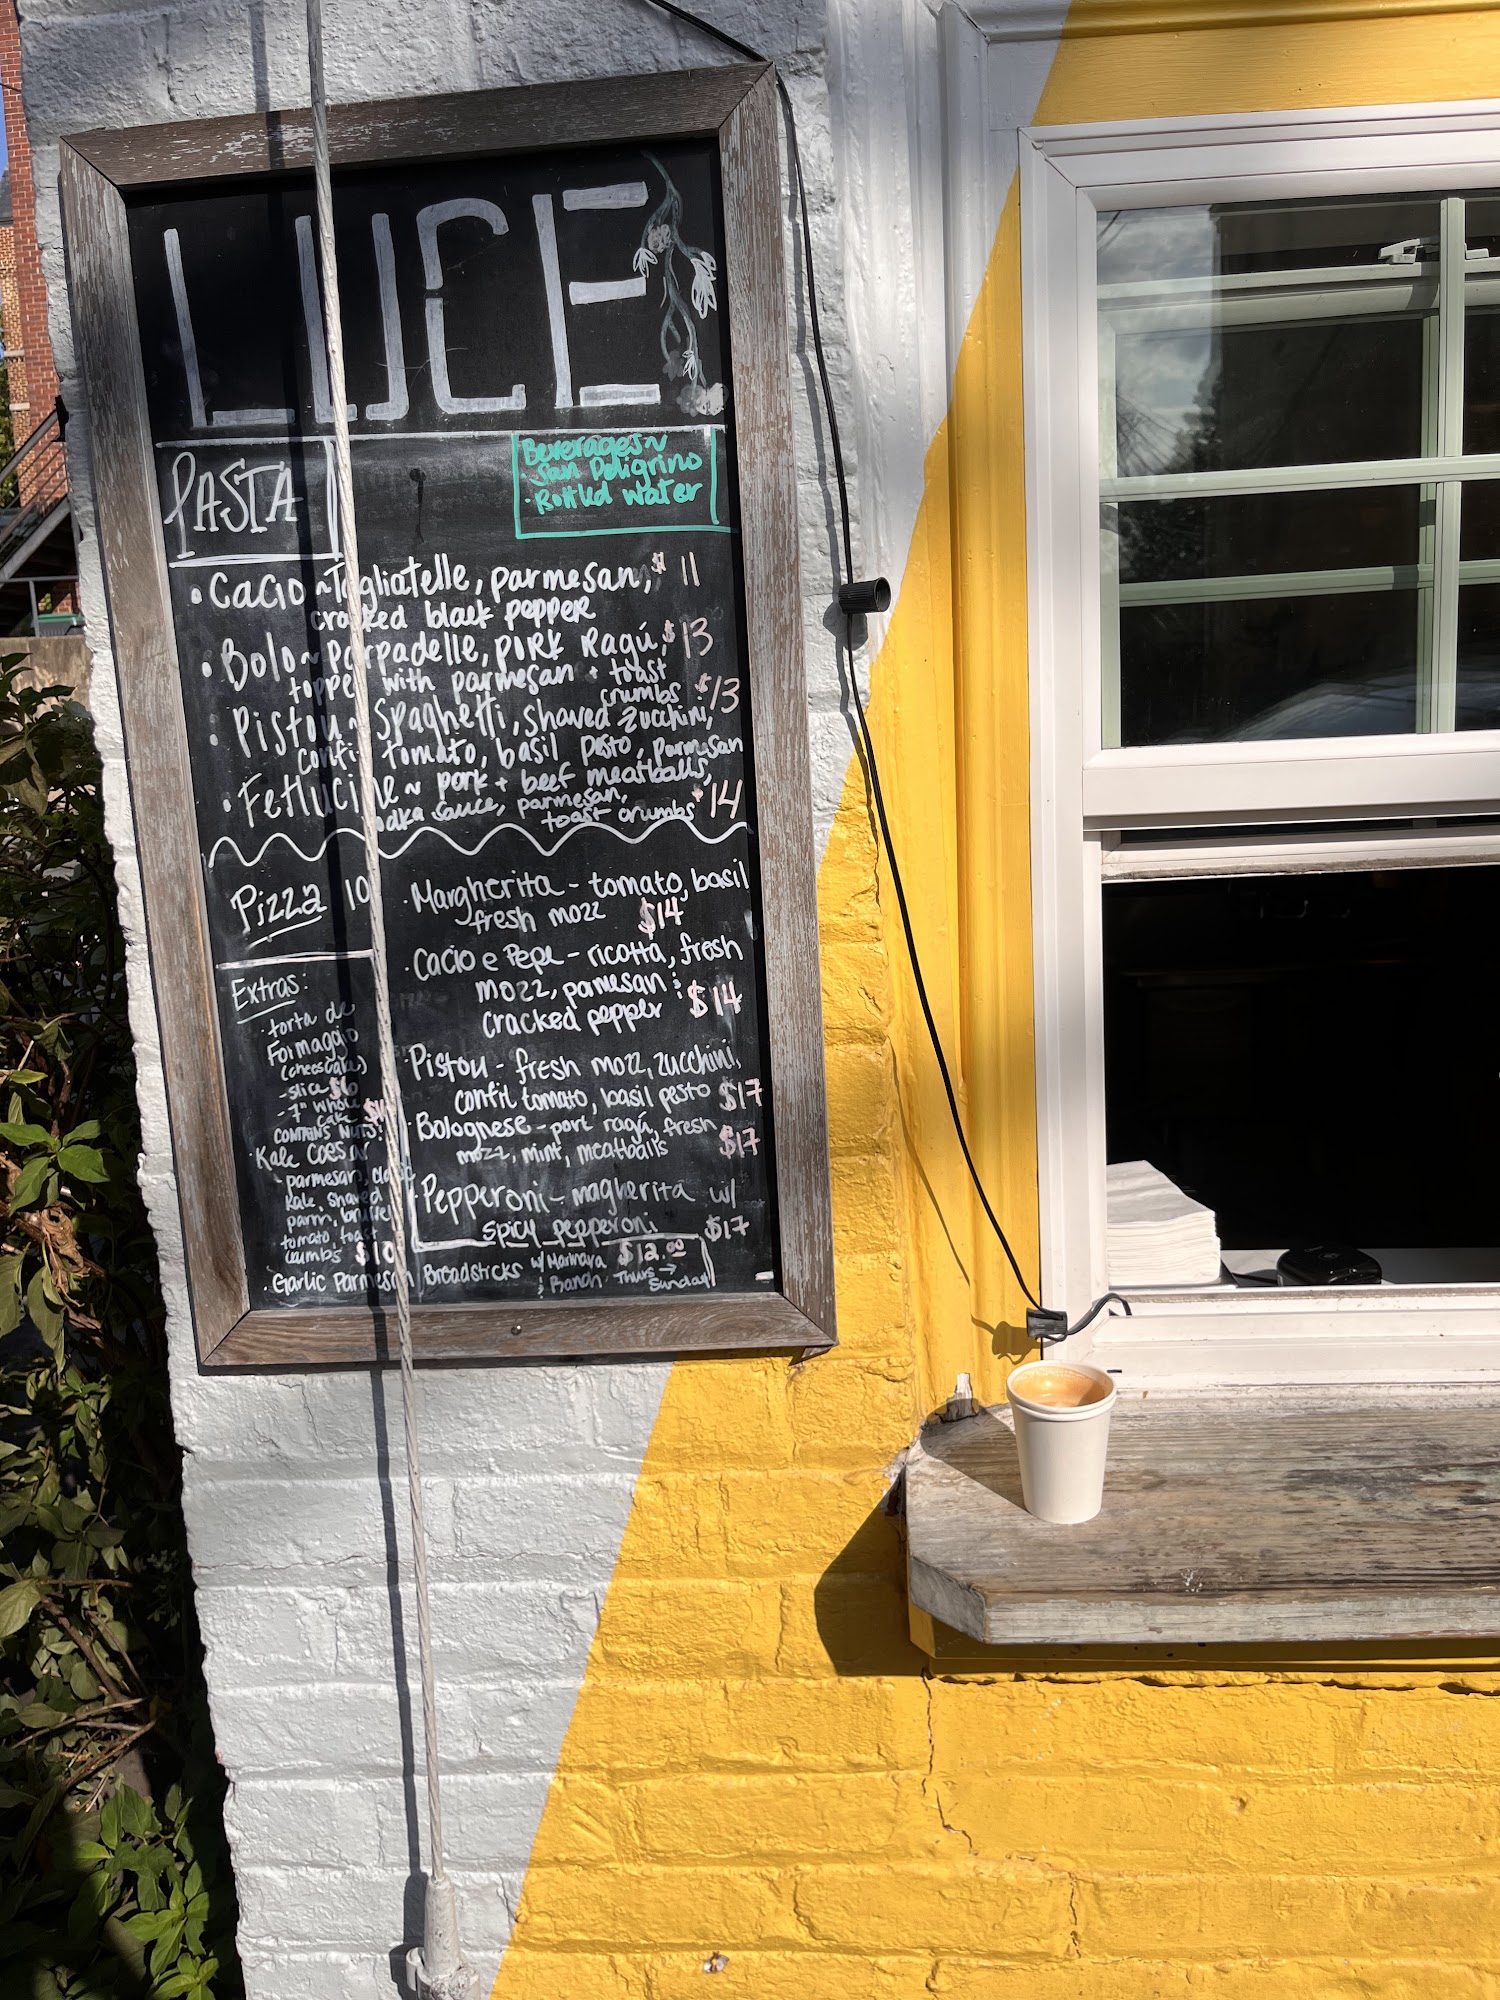 LUCE
PASTA
Beverages~
San Peligrino
· Bottled water
• Cacio ~ Tagliatelle, parmesan, $11
cracked black pepper
• Bolo ~ Parpadelle, pork Ragú, $13
topped with parmesan + toast
crumbs
• Pistou ~ Spaghetti, shaved zucchini, $13
confit tomato, basil pesto, parmesan
• Fettucine ~ pork + beef meatballs,
vodka sauce, parmesan,
toast crumbs $14
Pizza 10
· Margherita - tomato, basil
fresh mozz $14
· Cacio e Pepe - ricotta, fresh
mozz, parmesan
cracked pepper $14
· Pistou - fresh mozz, zucchini,
confit tomato, basil pesto $17
· Bolognese - pork ragú, fresh
mozz, mint, meatballs $17
· Pepperoni - magherita w/
spicy pepperoni $17
Extras:
· torta de
Formaggio
(cheesecake)
- slice $6
- 7" whole
cake
CONTAINS NUTS!
· Kale Caesar
- parmesan,
kale, shaved
parm,
tomato, toast
crumbs $10
· Garlic Parmesan Breadsticks w/ Marinara $12.00
Ranch Thurs → Sunday